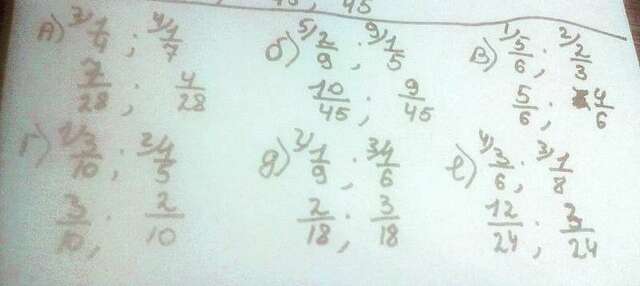 45
А) 7/ 1/4 ; 4/ 1/7
7/28 ; 4/28
б) 5/ 2/9 ; 9/ 1/5
10/45 ; 9/45
В) 1/ 5/6 ; 2/ 2/3
5/6 ; 4/6
Г) 1/ 3/10 ; 2/ 1/5
3/10 ; 2/10
д) 2/ 1/9 ; 3/ 1/6
2/18 ; 3/18
е) 4/ 3/6 ; 3/ 1/8
12/24 ; 3/24